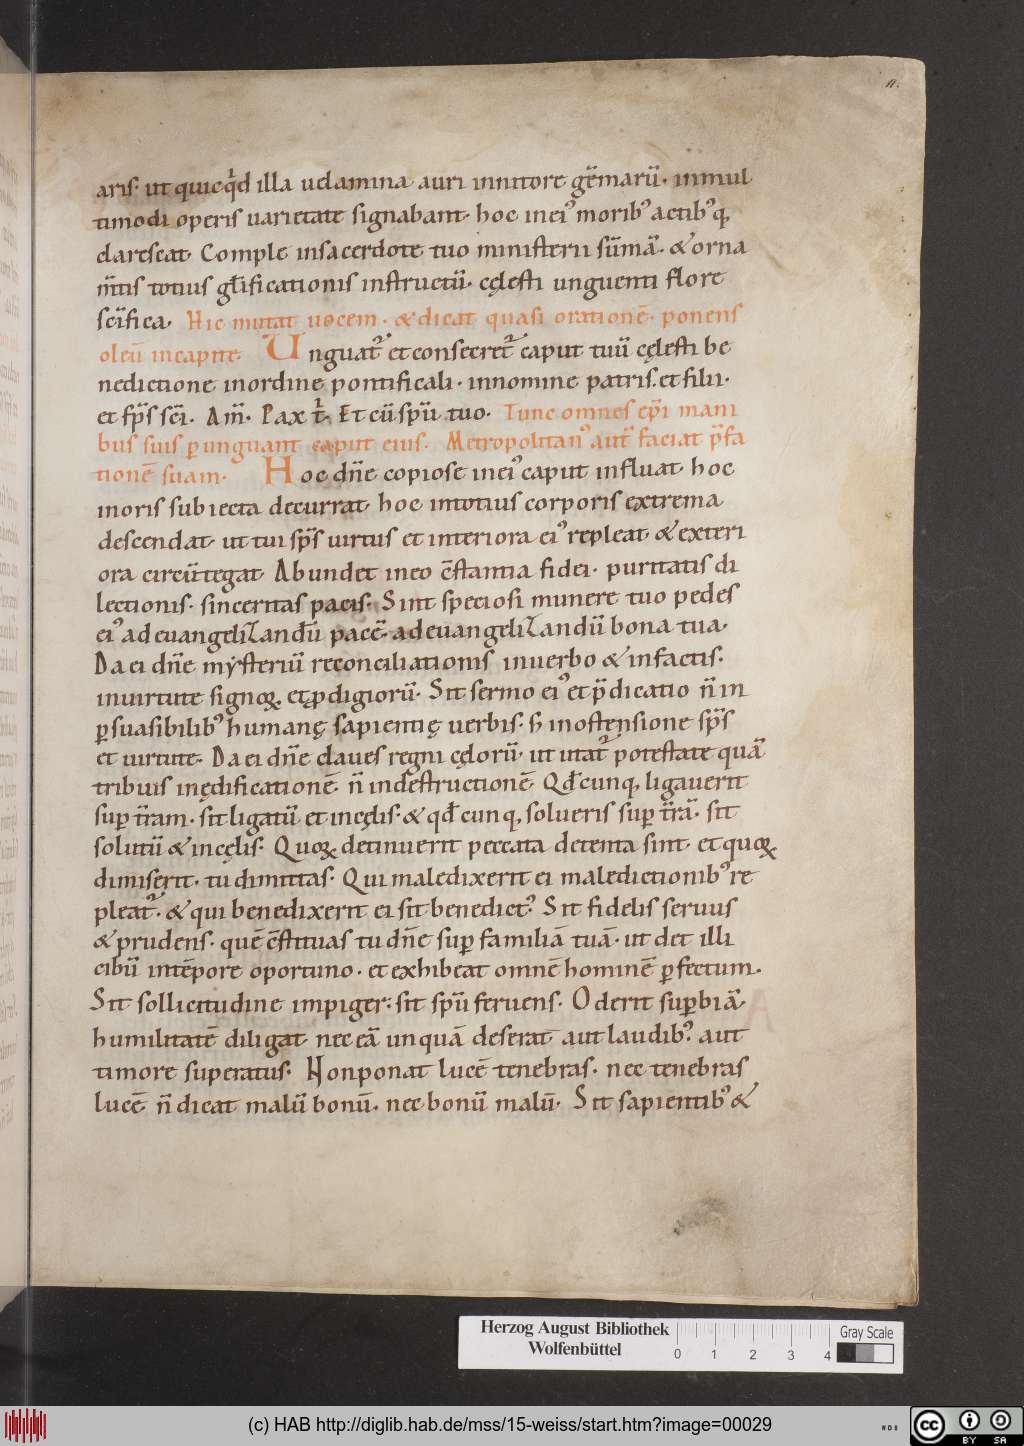 11.
aris· ut quicqͥd illa uelamina auri innitore gēmarū· inmul
timodi operis uarietate signabant· hoc inei᾽ morib᾽ actib᾽q;
clarescat· Comple insacerdote tuo ministerii sūmā· & orna
m̄tis totius gl̄ificationis instructū· cęlesti unguenti flore
sc̄ifica· Hic mutat uocem· & dicat quasi orationē· ponens
oleū incapite· Unguat᷒ et consecret᷒ caput tuū cęlesti be
nedictione inordine pontificali· innomine patris· et filii·
et sp̄s sc̄i· Am̄· Pax t̍· Et cū sp̄ū tuo· Tunc omnes ep̄i mani
bus suis ꝑunguant caput eius· Metropolitan᾽ aut̄ faciat p̄fa
tionē suam· Hoc dn̄e copiose inei᾽ caput influat· hoc
inoris subiecta decurrat· hoc intotius corporis extrema
descendat· ut tui sp̄s uirtus et interiora ei᾽ repleat· & exteri
ora circūtegat· Abundet ineo c̄stantia fidei· puritatis di
lectionis· sinceritas pacis· Sint speciosi munere tuo pedes
ei᾽ ad euangelizandū pacē· ad euangelizandū bona tua·
Da ei dn̄e mysteriū reconciliationis inuerbo & infactis·
inuirtute signoꝝ et ꝓdigiorū· Sit sermo ei᾽ et p̄dicatio n̄ in
ꝑsuasibilib᾽ humanę sapientię uerbis· s̄ inostensione sp̄s
et uirtute· Da ei dn̄e claues regni cęlorū· ut utat᷒ potestate quā
tribuis inędificationē· n̄ indestructionē· Qd̄cunq; ligauerit
suꝑ t̄ram· sit ligatū et incęlis· & qd̄cunq; solueris suꝑ t̄rā· sit
solutū & incęlis· Quoꝝ detinuerit peccata detenta sint· et quoꝝ
dimiserit· tu dimittas· Qui maledixerit ei maledictionib᾽ re
pleat᷒· & qui benedixerit ei sit benedict᾽· Sit fidelis seruus
& prudens· quē c̄stituas tu dn̄e suꝑ familiā tuā· ut det illi
cibū intēpore oportuno· et exhibeat omnē hominē ꝑfectum·
Sit sollicitudine impiger· sit sp̄ū feruens· Oderit suꝑbiā·
humilitatē diligat· nec eā unquā deserat· aut laudib᾽· aut
timore superatus· Non ponat lucē tenebras· nec tenebras
lucē· n̄ dicat malū bonū· nec bonū malū· Sit sapientib᾽ &
Herzog August Bibliothek
Wolfenbüttel
0 1 2 3 4
Gray Scale
(c) HAB http://diglib.hab.de/mss/15-weiss/start.htm?image=00029
WDB
cc BY SA